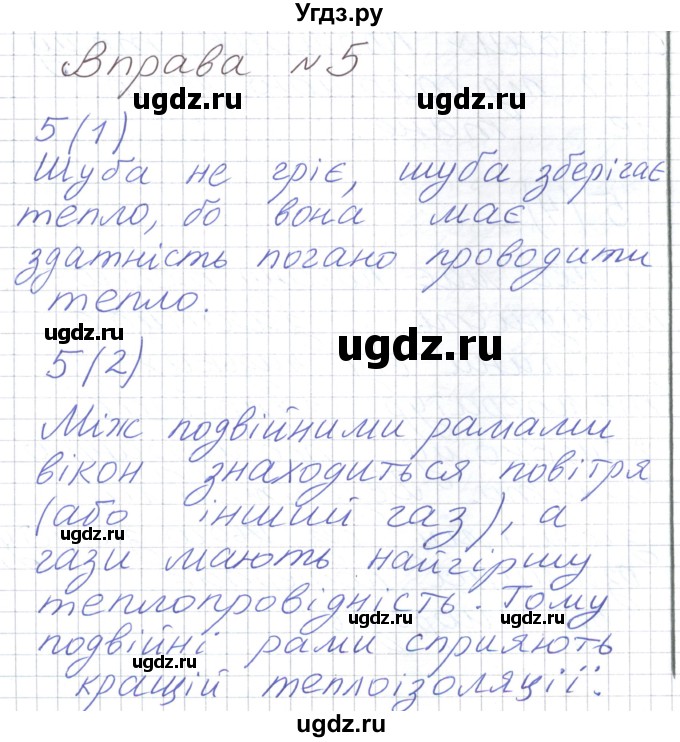 Угдз.ру
Вправа №5
ugdz.ru ugdz.ru
5(1)
Шуба не гріє, шуба зберігає
тепло, бо вона має
здатність погано проводити
тепло.
ugdz.ru
ugdz.ru
5(2)
Між подвійними рамами
вікон знаходиться повітря
(або інший газ), а
ugdz.ru
гази мають найгіршу
теплопровідність. Тому
ugdz.ru
подвійні рами сприяють
ugdz.ru
кращій теплоізоляції.
ugdz.ru
ugdz.ru